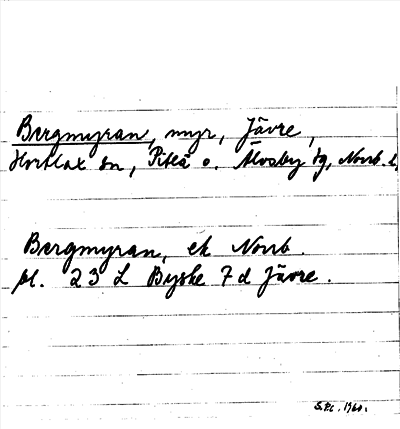 Bergmyran, myr, Jävre,
Hortlax sn, Piteå o. Älvsby tg, Norrb. l.
Bergmyran, ek Norrb.
bl. 23 L Byske 7 d Jävre.